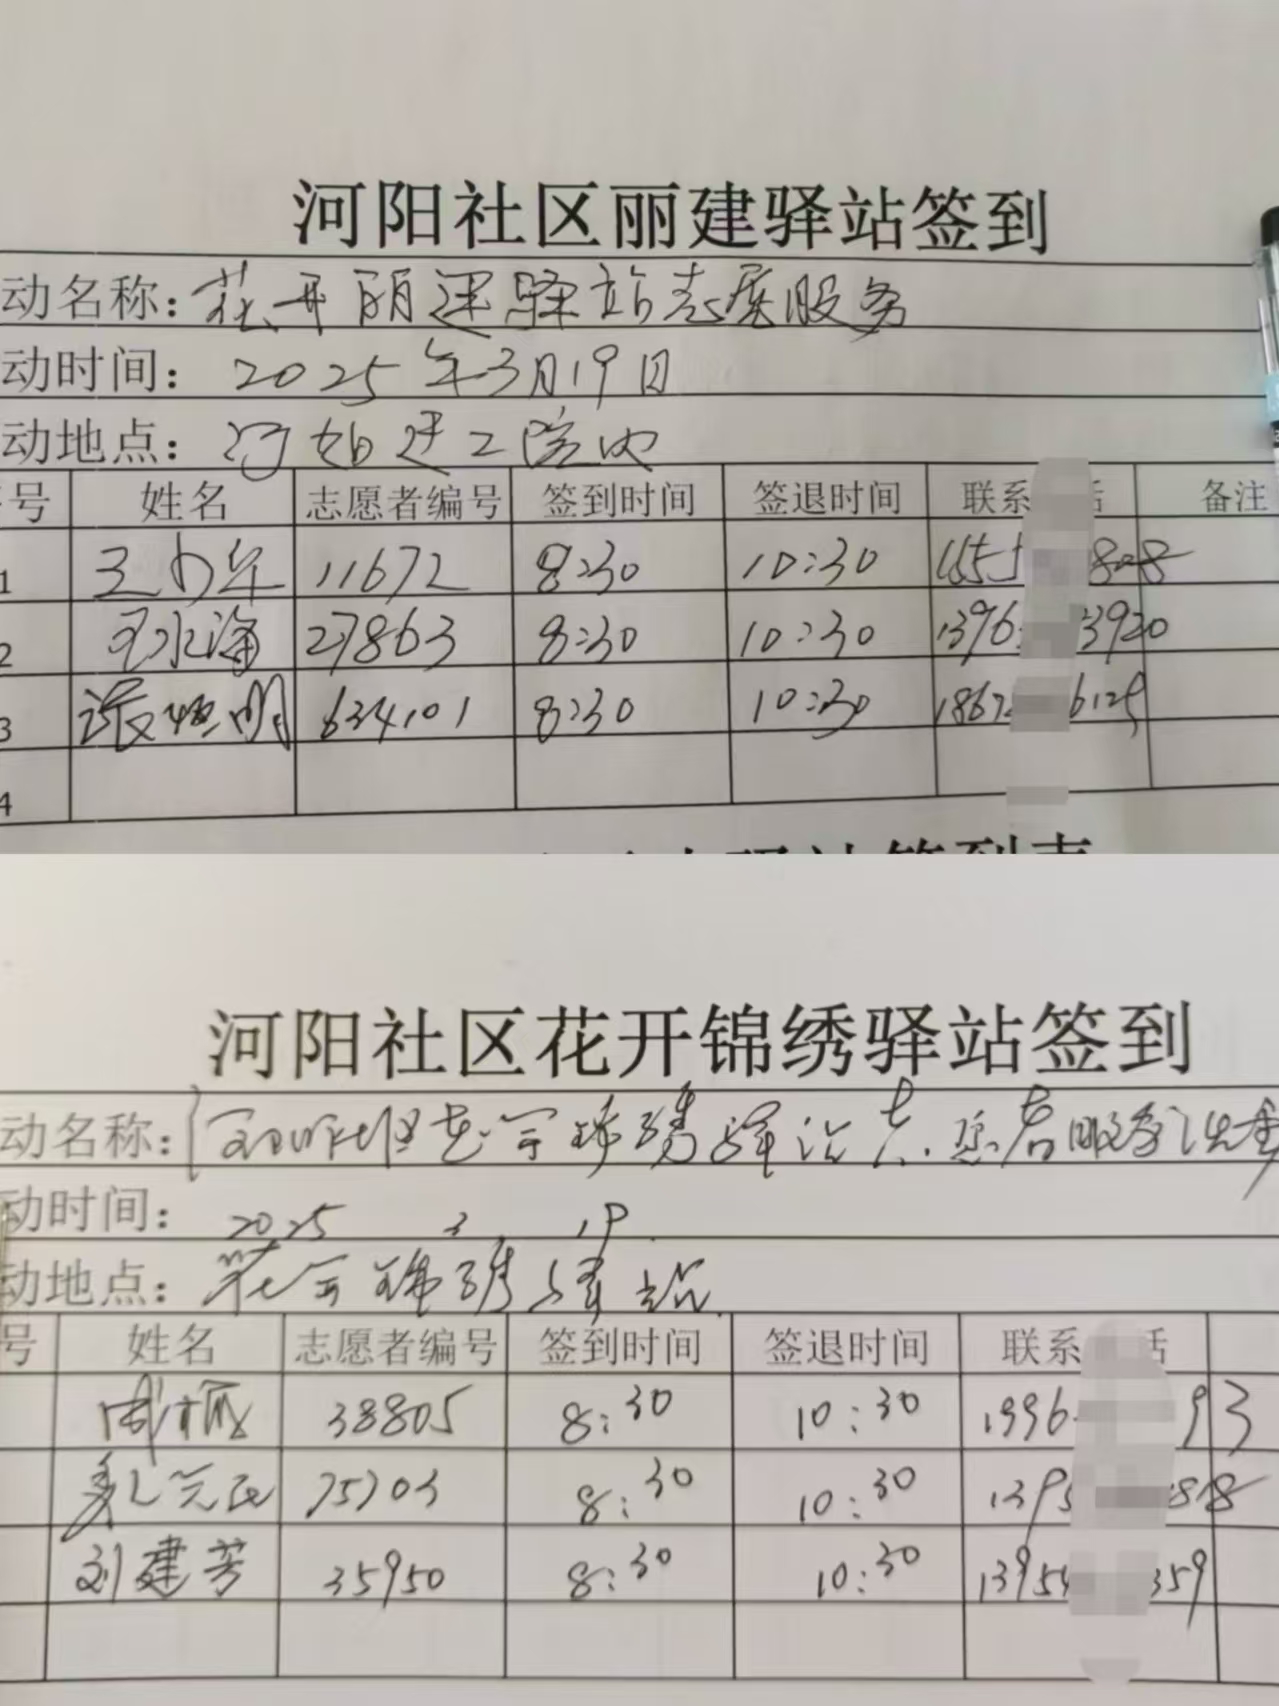 河阳社区丽建驿站签到
动名称：花开丽建驿站志愿服务
动时间：2025年3月19日
动地点：河阳建工院内
号 姓名 志愿者编号 签到时间 签退时间 联系 话 备注
1 王 11672 8:30 10:30
2 王永海 27863 8:30 10:30 1396 3920
3 明 634101 8:30 10:30 1867 6125
4
签到表
河阳社区花开锦绣驿站签到
动名称： 驿站志愿者服务活动
动时间：2025 3 19
动地点：花开锦绣驿站
号 姓名 志愿者编号 签到时间 签退时间 联系 话
38805 8:30 10:30 1996 93
8:30 10:30 1395 818
刘建芳 35950 8:30 10:30 1395 359